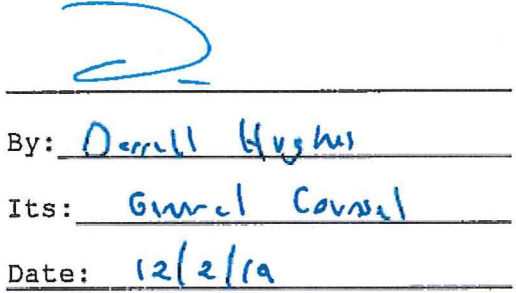 By: Darrell Hughes
Its: General Counsel
Date: 12/2/19